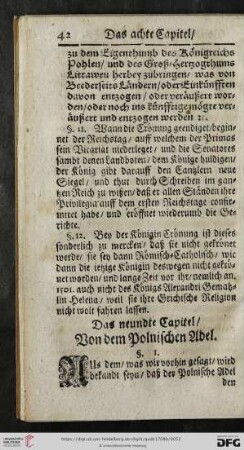 42 Das achte Capitel/
zu dem Eigenthumb des Königreichs
Pohlen/ und des Groß-Hertzogthums
Littawen herbey zubringen/ was von
Beederseits Ländern/oder Einkünfften
davon entzogen/ oder veräußert wor-
den/oder noch ins künfftige mögte ver-
äußert und entzogen werden ⁊c.
§. 11. Wann die Crönung geendiget/begin-
net der Reichstag/ auff welchem der Primas
sein Vicariat niederleget/ und die Senatores
sambt denen Landboten/ dem Könige huldigen/
der König gibt darauff den Cantzlern neue
Siegel/ und thut durch Schreiben im gan-
tzen Reich zu wissen/daß er allen Ständen ihre
Privilegia auff dem ersten Reichstage confir-
miret habe/ und eröffnet wiederumb die Ge-
richte.
§. 12. Bey der Königin Crönung ist dieses
sonderlich zu mercken/ daß sie nicht gekrönet
werde/ sie sey dann Römisch-Catholisch/ wie
dann die jetzige Königin deswegen nicht gekrö-
net worden/ und lange Zeit vor ihr/nemlich an.
1501. auch nicht des Königs Alexandri Gemah-
lin Helena/ weil sie ihre Grichische Religion
nicht wolt fahren lassen.
Das neundte Capitel/
Von dem Polnischen Adel.
§. 1.
Aus dem/ was wir vorhin gesagt/ wird
bekandt seyn/ daß der Polnische Adel
den